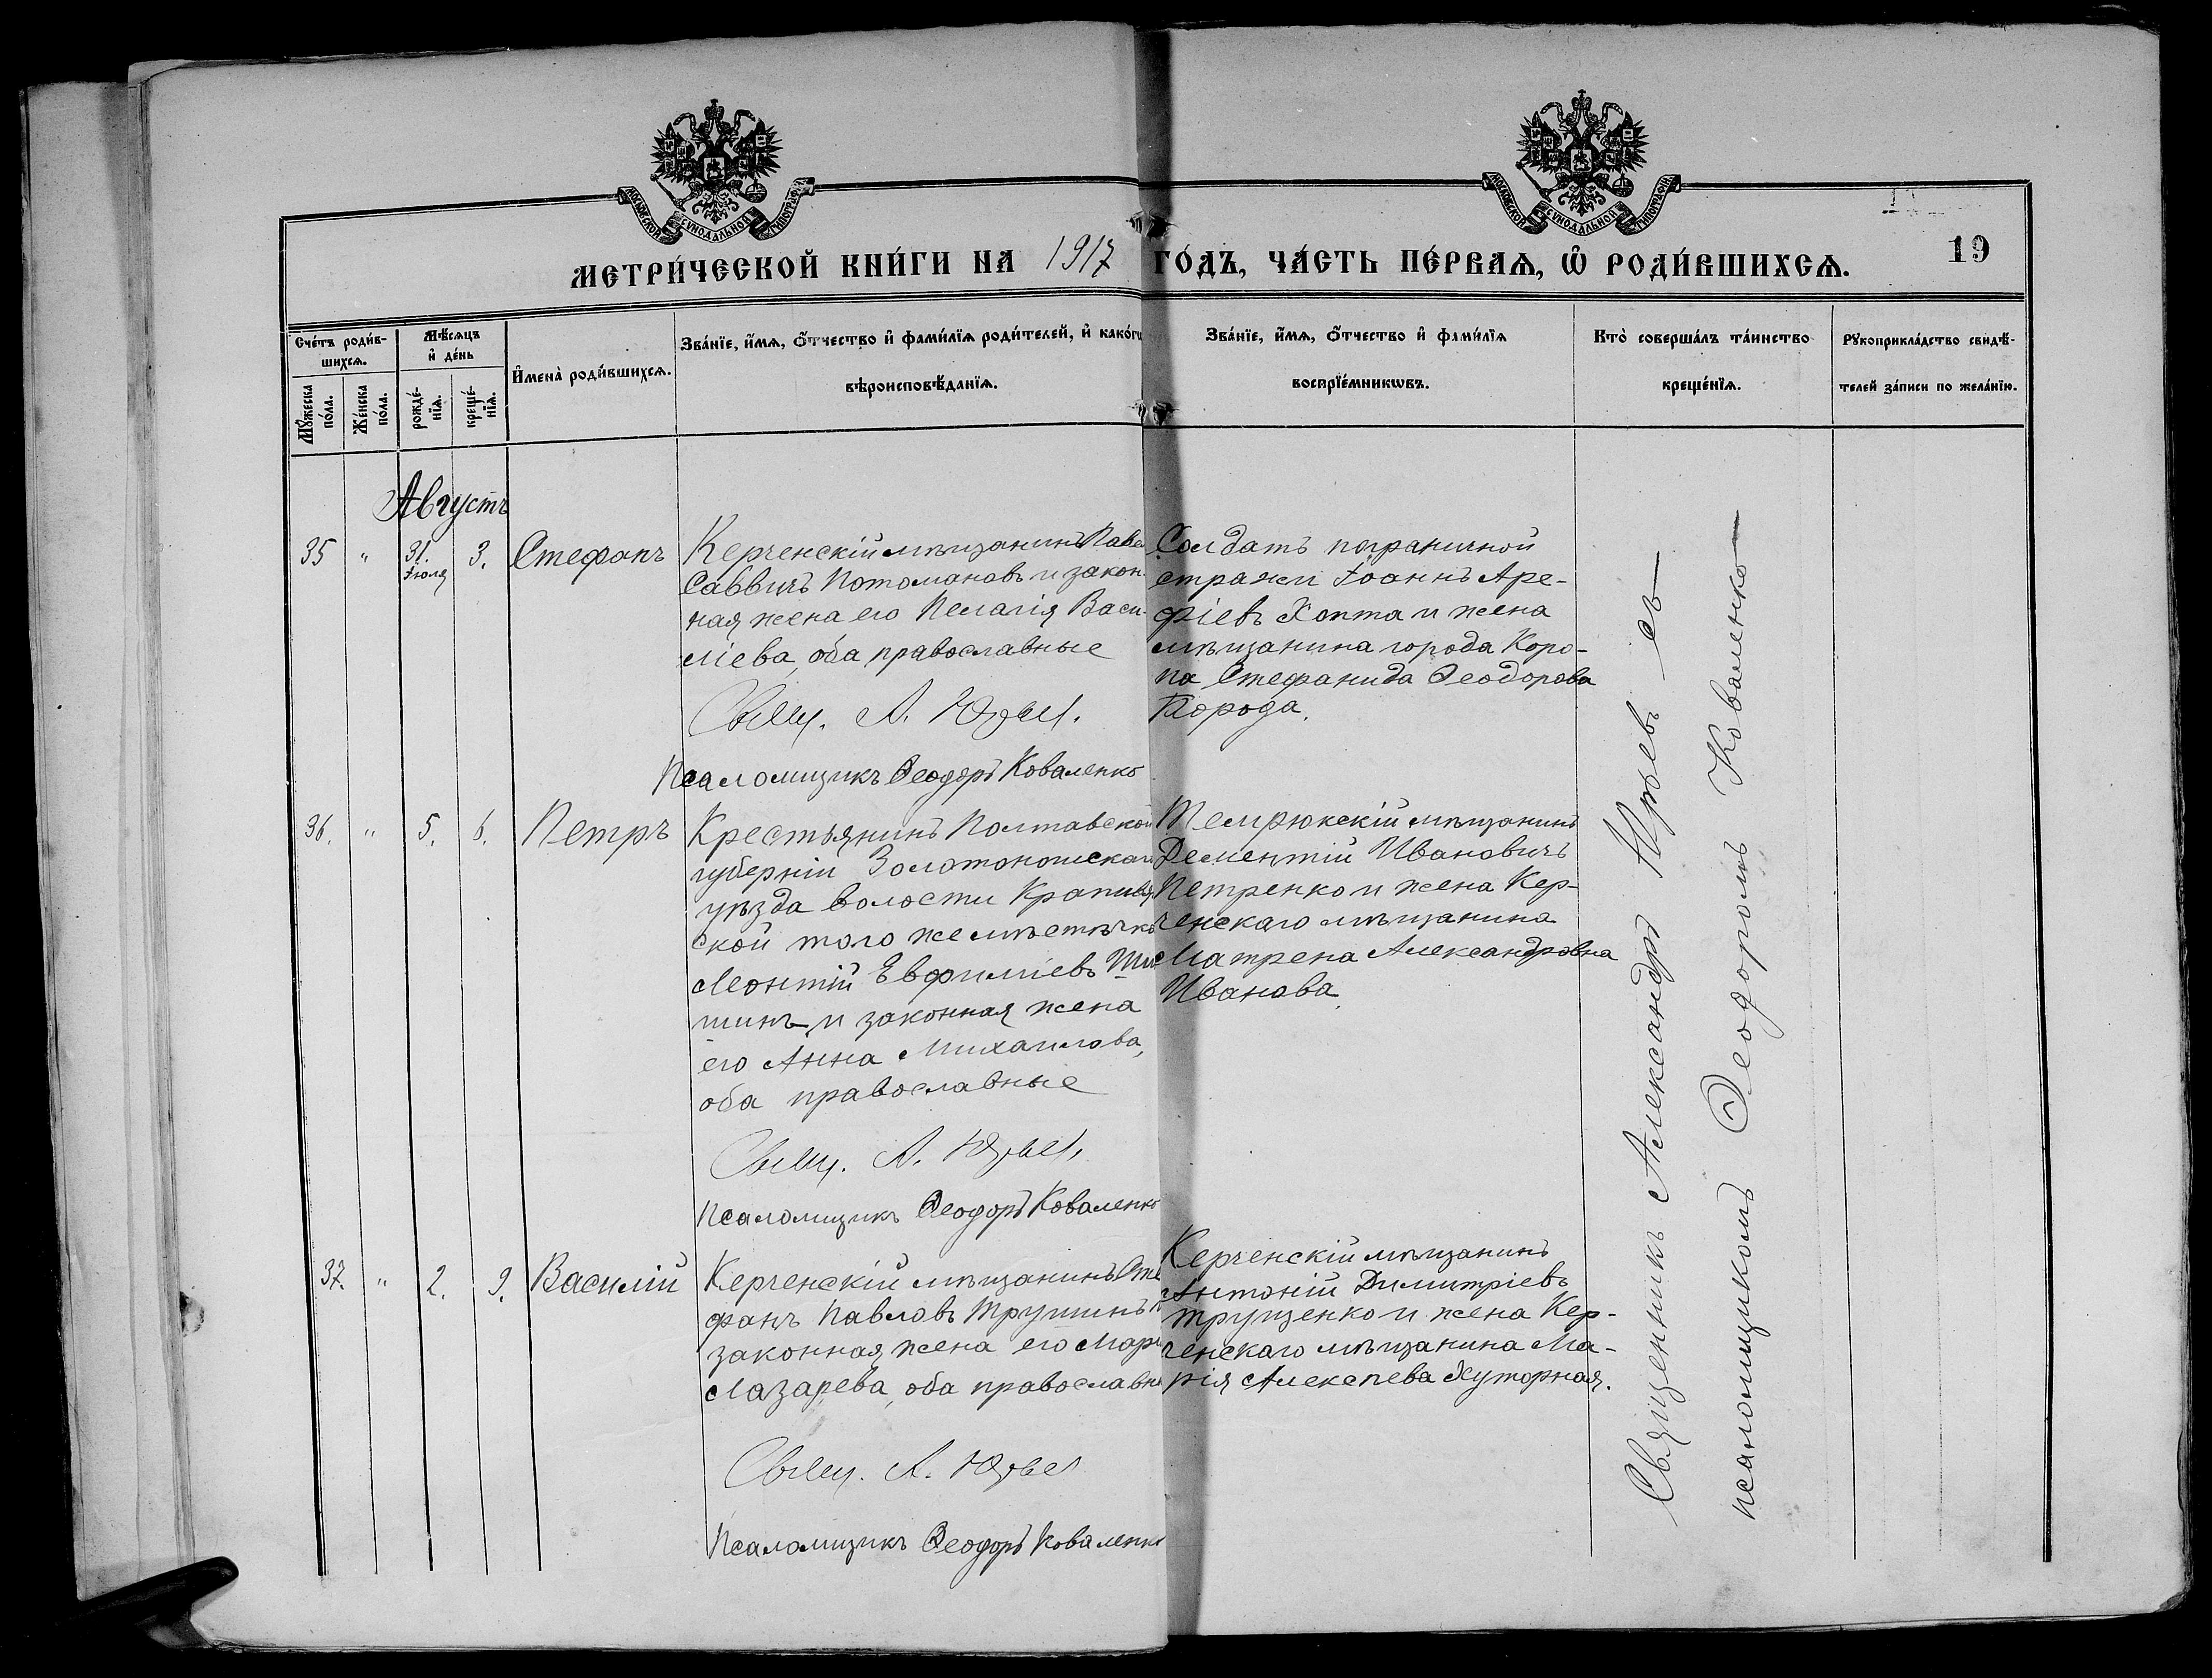 МОСКОВСКОЙ СУНОДАЛЬНОЙ ТИПОГРАФІИ
МОСКОВСКОЙ СУНОДАЛЬНОЙ ТИПОГРАФІИ
МЕТРИ́ЧЕСКОЙ КНИ́ГИ НА 1917 ГО́ДЪ, ЧА́СТЬ ПЕ́РВАѦ, Ѡ҆ РОДИ́ВШИХСѦ.
19
Сче́тъ роди́в-
шихсѧ.
Мꙋ́жеска
по́ла.
Же́нска
по́ла.
Мѣ́сѧцъ
и҆ де́нь
рожде́-
нїѧ.
креще́-
нїѧ.
И҆мена̀ роди́вшихсѧ.
Зва́нїе, и҆́мѧ, ѻ҆́тчество и҆ фами́лїѧ роди́телей, и҆ како́гѡ
вѣроисповѣ́данїѧ.
Зва́нїе, и҆́мѧ, ѻ҆́тчество и҆ фами́лїѧ
воспрїе́мникѡвъ.
Кто̀ соверша́лъ та́инство
креще́нїѧ.
Рꙋкоприкла́дство свидѣ́-
телей за́писи по жела́нїю.
Августъ
35 " 31. Іюля 3. Стефанъ
Керченскій мѣщанинъ Паве
Саввичъ Потомановъ и закон-
ная жена его Пелагія Васи-
ліева, оба православные
Свящ. А. Юрьев.
Псаломщикъ Ѳеодоръ Коваленко
Солдатъ пограничной
стражи Іоаннъ Аре-
фіевъ Хопта и жена
мѣщанина города Коро-
па Стефанида Ѳеодорова
Порода.
36. " 5. 6. Петръ
Крестьянинъ Полтавской
губерніи Золотоношскаго
уѣзда волости Крапив
ской того же мѣстечка
Леонтій Евфиміевъ Ши
шинъ и законная жена
его Анна Михаилова,
оба православные
Свящ. А. Юрьев.
Псаломщикъ Ѳеодоръ Коваленко
Темрюкскій мѣщанинъ
Дементій Ивановичъ
Петренко и жена Кер-
ченскаго мѣщанина
Матрена Александровна
Иванова.
37. " 2. 9. Василій
Керченскій мѣщанинъ Сте
фанъ Павловъ Трушинъ и
законная жена его Мари
Лазарева, оба православны
Свящ. А. Юрьев
Псаломщикъ Ѳеодоръ Коваленко
Керченскій мѣщанинъ
Антоній Димитріевъ
Трущенко и жена Кер-
ченскаго мѣщанина Ма-
рія Алексѣева Хуторная.
Священникъ Александръ Юрьевъ съ
псаломщикомъ Ѳеодоромъ Коваленко